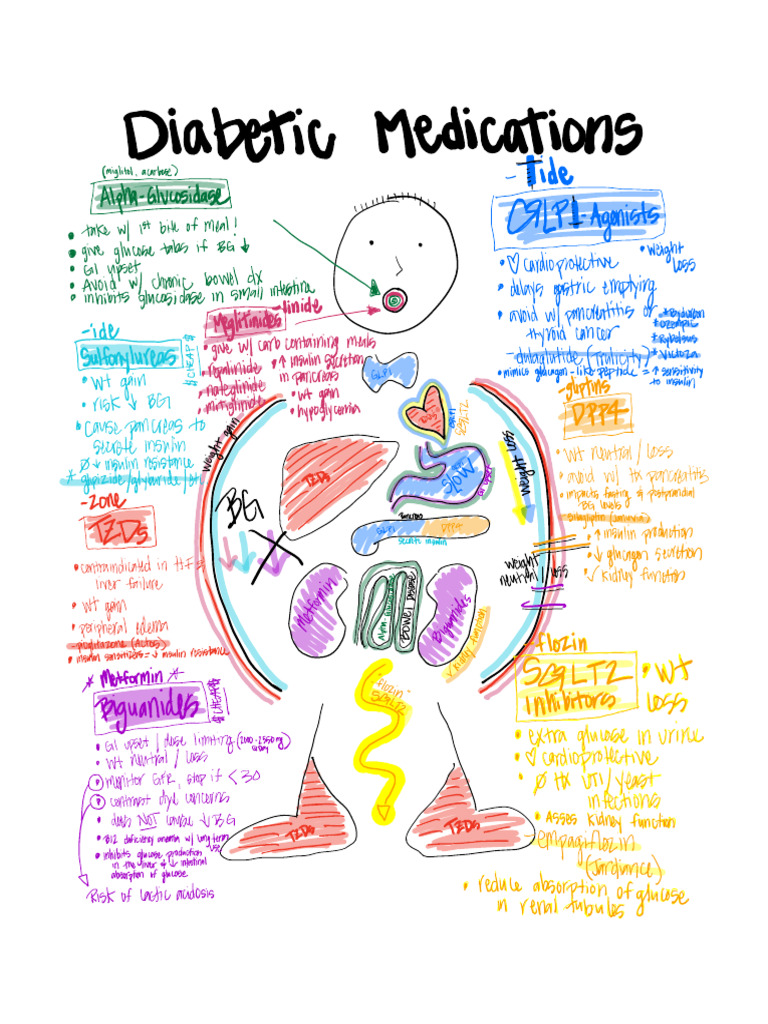 Diabetic Medications
(miglitol, acarbose)
Alpha-Glucosidase
• take w/ 1st bite of meal!
• give glucose tabs if BG ↓
• GI upset
• Avoid w/ chronic bowel dx
• inhibits glucosidase in small intestine
-linide
Meglitinides
• give w/ carb containing meals
• repalinide
• nateglinide
• mitiglinide
• ↑ insulin secretion
in pancreas
• wt gain
• hypoglycemia
-ide
Sulfonylureas
$ CHEAP $
• wt gain
• risk ↓ BG
• cause pancreas to
secrete insulin
Ø ↓ insulin resistance
* glipizide/glyburide/
-zone
TZDs
• contraindicated in HF &
liver failure
• wt gain
• peripheral edema
- pioglitazone (Actos)
• insulin sensitizers = ↓ insulin resistance
* Metformin *
Biguanides
$ CHEAP $
• GI upset / dose limiting (2000-2550 mg
• wt neutral / loss
• monitor GFR, stop if < 30
• contrast dye concerns
• does NOT cause ↓ BG
• B12 deficiency anemia w/ long term
use
• inhibits glucose production
in the liver & ↓ intestinal
absorption of glucose
Risk of lactic acidosis
-Tide
GLP1-Agonists
• ♡ cardioprotective
• weight
loss
• delays gastric emptying
• avoid w/ pancreatitis or
thyroid cancer
* Bydureon
* Ozempic
* Rybelsus
* Victoza
- dulaglutide (Trulicity)
• mimics glucagon-like peptide = ↑ sensitivity
to insulin
-gliptins
DPP4
• wt neutral / loss
• avoid w/ hx pancreatitis
• impacts fasting & postprandial
BG levels
- sitagliptin (Januvia)
• ↑ insulin production
• ↓ glucagon secretion
• ✓ kidney function
-flozin
SGLT2
Inhibitors
• wt
loss
• extra glucose in urine
• ♡ cardioprotective
• Ø hx UTI/yeast
infections
• Asses kidney function
- empagiflozin
(Jardiance)
• reduce absorption of glucose
in renal tubules
Weight gain
BG
GLP1
TZDs
GLP1
SGLT2
TZDs
SLOW
GI upset
Weight loss
Pancreas
GLP1
DPP4
secrets insulin
weight
neutral / loss
Metformin
Alpha-Glucosidase
Bowel Disease
Biguanides
✓ kidney function
"flozin"
SGLT2
TZDs
TZDs